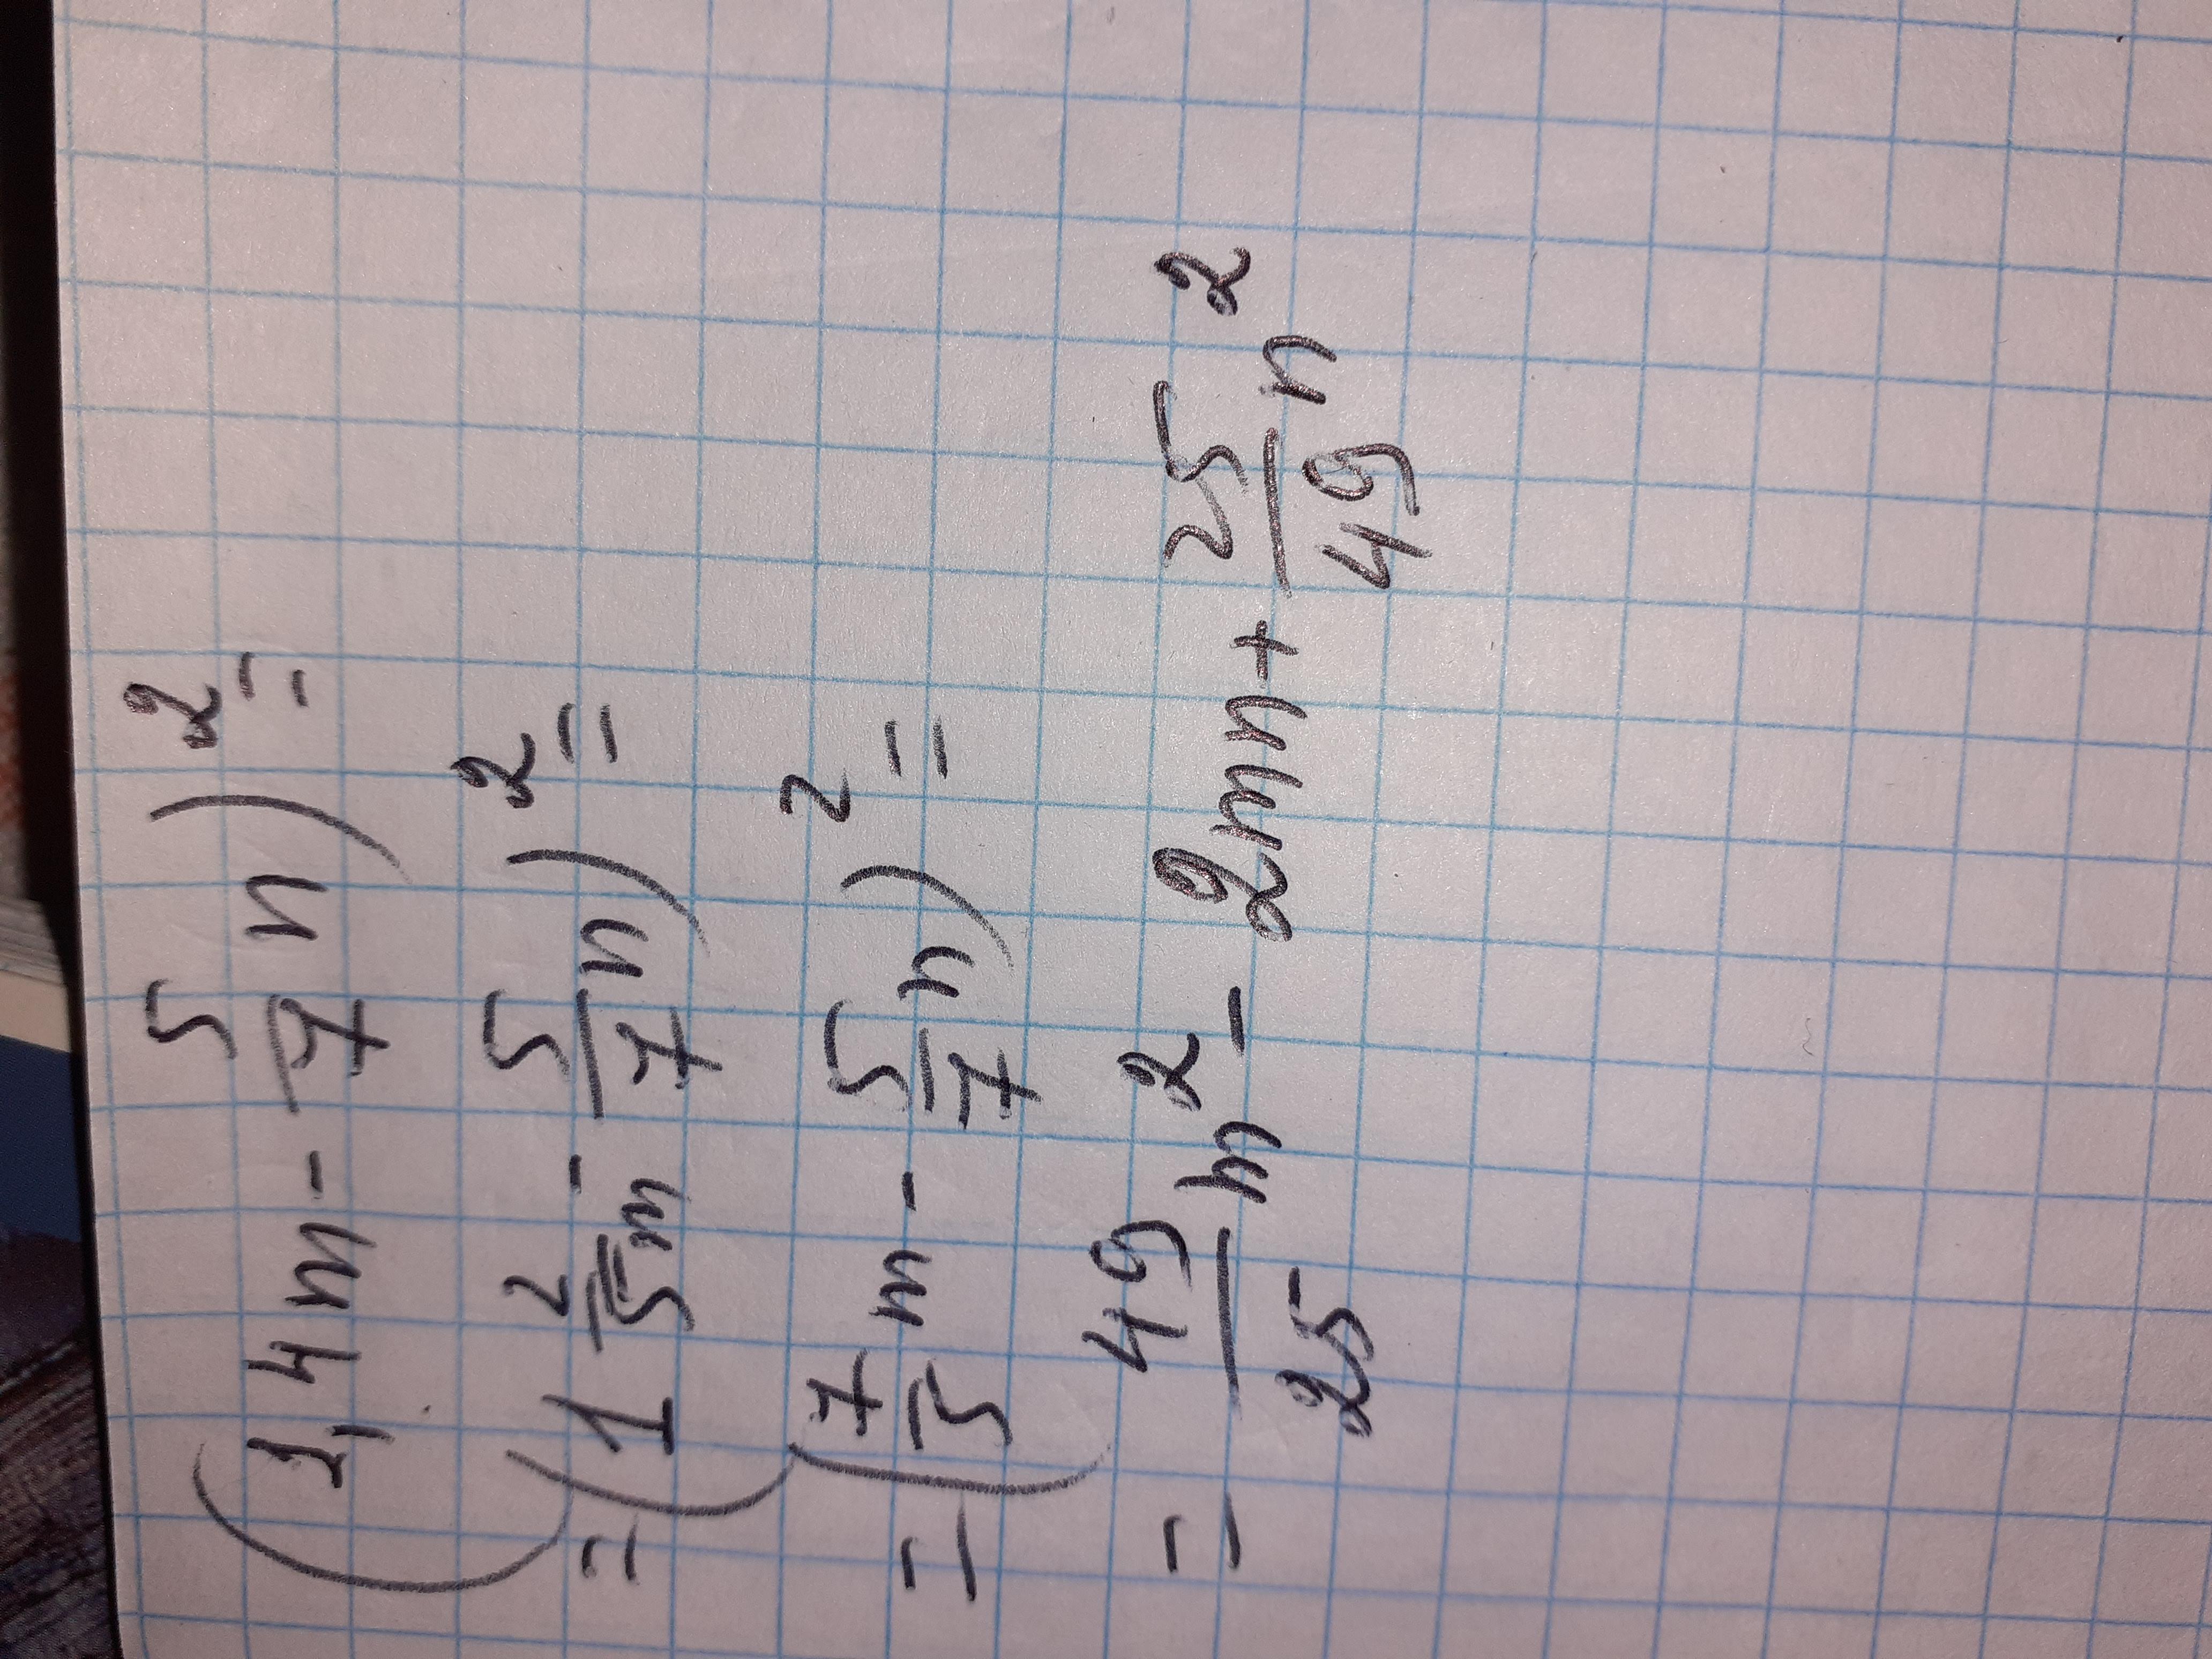 (1,4m - 5/7 n)² =
= (1 2/5 m - 5/7 n)² =
= (7/5 m - 5/7 n)² =
= 49/25 m² - 2mn + 25/49 n²